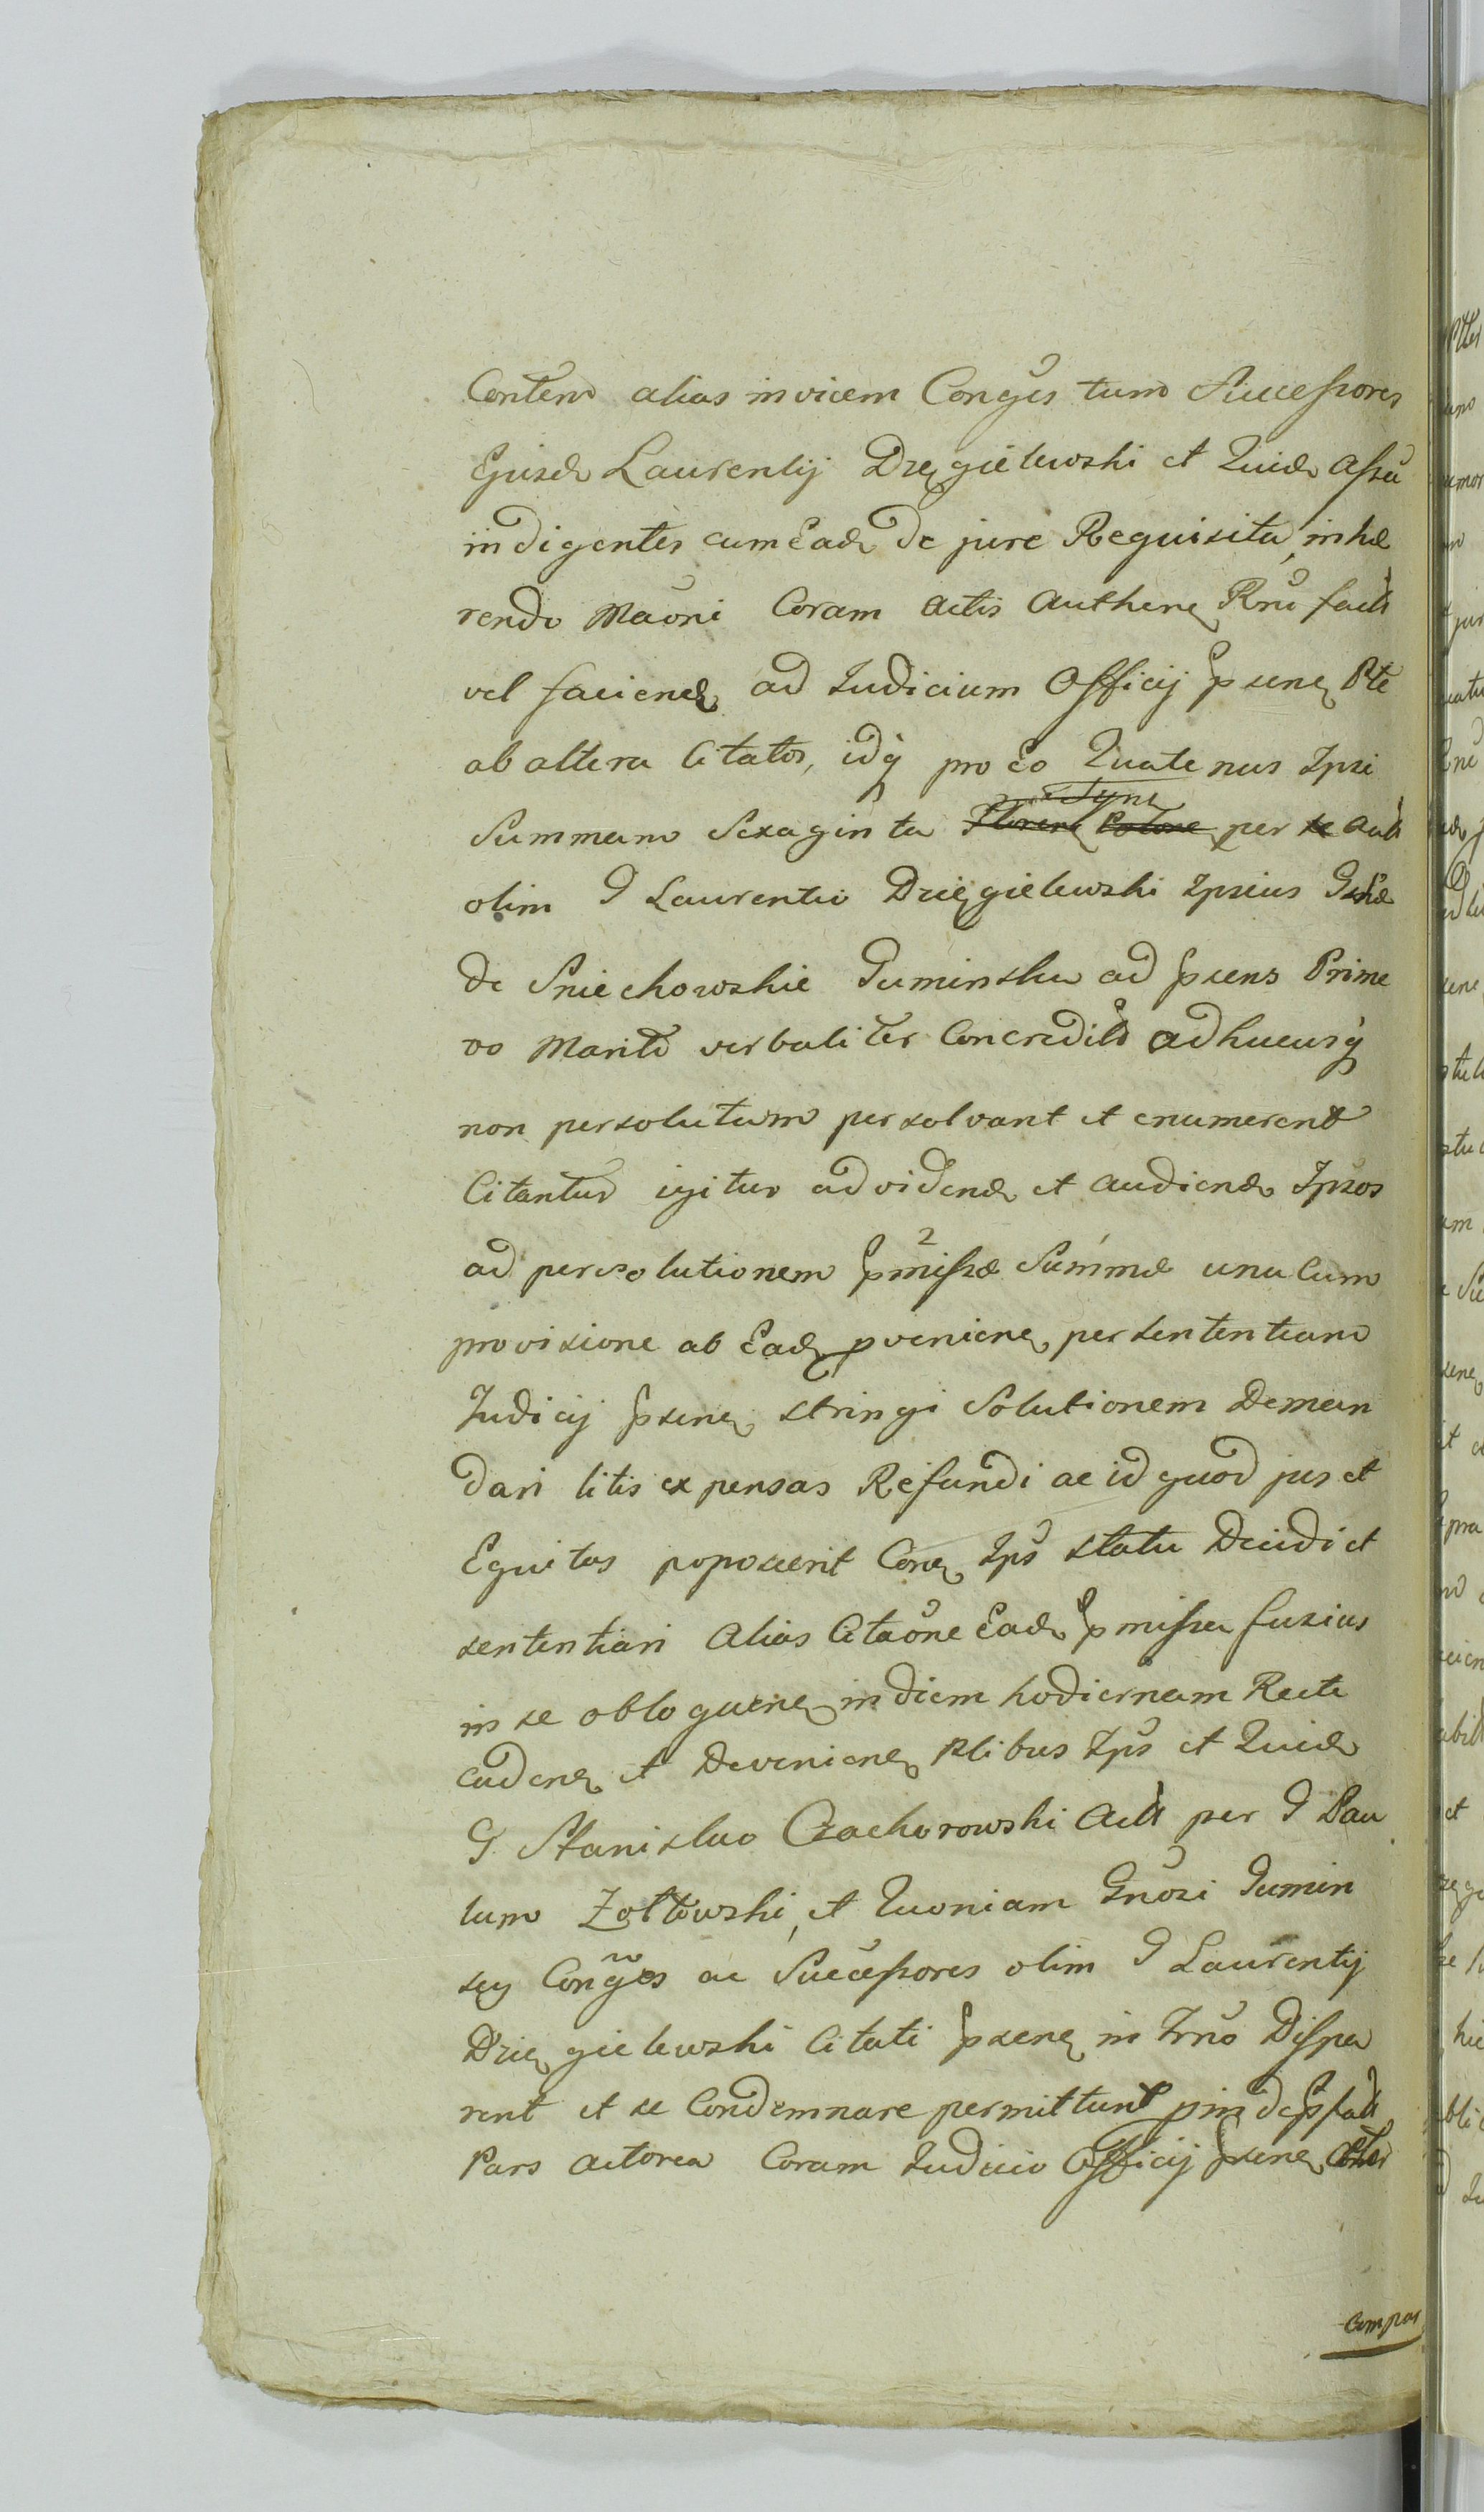 Conten alias invicem Conges tum Successores
Ejusd Laurentij Dzięgielewski et Quid assu
indigentes cum Ead de jure Requisita, inhæ
rendo Maoni Coram Actis Authen Rnu facta
vel faciend ad Judicium Officij psens Pte
ab altera Citatos, idq pro Eo Quatenus Ipsi
Summam Sexaginta Floren Polone per se Acti
olim G Laurentio Dzięgielewski Ipsius Gsæ
de Sniechowskie Guminska ad psens Prime
vo Marito verbaliter Concredito adhucusq
non persolutum persolvant et enumerent
Citantur igitur ad vidend et audiend Ipsos
ad persolutionem pmissæ Summæ una Cum
provisione ab Ead pvenien per sententiam
Judicij psens stringi Solutionem Deman
dari litis expensas Refundi ac id quod jus et
Equitas poposcerit Conq Ips statu Decidi et
sententiari Alias Citaone Ead pmissa fusius
in se obloquen in diem hodiernam Recte
caden et Devenien Ptibus Ips et Quid
G Stanislao Czachorowski Acti per G Pau
lum Zołtowski, et Quoniam Gnosi Gumin
scy Conges ac Successores olim G Laurentij
Dzięgielewski Citati psens in Trno Dispa
rent et se Condemnare permittunt pinde
Pars actorea Coram Judicio Officij psens
Compar